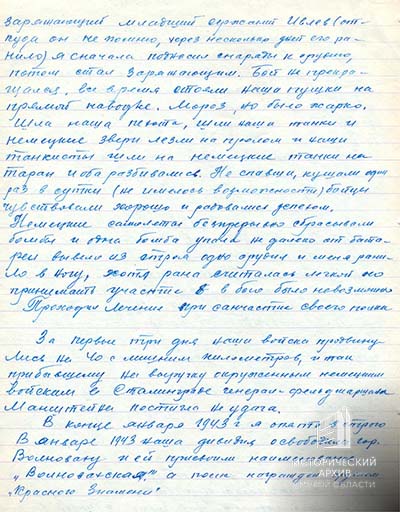 заряжающий младший сержант Ивлев (от-
куда он не помню, через несколько дней его ра-
нило) я сначала подносил снаряды к орудию,
потом стал заряжающим. Бой не прекра-
щался, все время стояли наши пушки на
прямой наводке. Мороз, но было жарко.
Шла наша пехота, шли наши танки и
немецкие звери лезли на пролом и наши
танкисты шли на немецкие танки на
таран и оба разбивались. Не спавши, кушали один
раз в сутки (не имелось возможности) бойцы
чувствовали хорошо и радовались успехом.
Немецкие самолеты безпрерывно сбрасывали
бомбы и одна бомба упала не далеко от бата-
реи вывело из строя одно орудия и меня рани-
ло в ногу, хотя рана считалась легкой но
принимать участие в бою было невозможно
Проходил лечение при санчасти своего полка
За первые три дня наши войска продвину-
лись на 40 с лишним километров, и так
прибывшему на выручку окруженным немецким
войскам в Сталинграде генерал-фельдмаршала
Манштейна постигла неудача.
В конце января 1943 г я опять в строю
В январе 1943 наша дивизия освободила гор.
Волновану и ей присвоили наименование
„Волновахская", а полк наградили орденом
„Красного Знамени"
ИСТОРИЧЕСКИЙ
АРХИВ
ОМСКОЙ ОБЛАСТИ